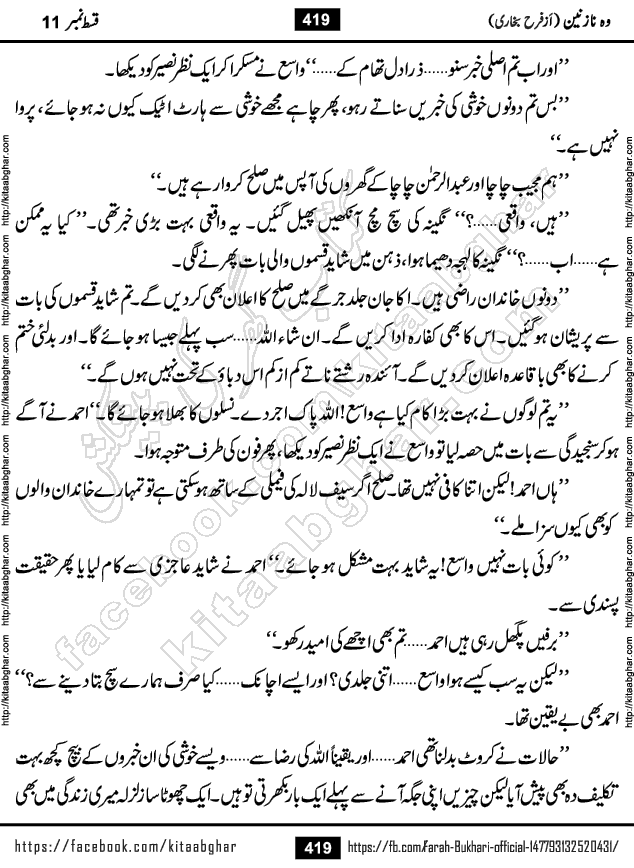 وہ نازنین (از فرح بخاری)
419
قسط نمبر 11
’’اور اب تم اصلی خبر سنو……ذرا دل تھام کے……‘‘ واسع نے مسکرا کر ایک نظر نصیر کو دیکھا۔
’’بس تم دونوں خوشی کی خبریں سناتے رہو، پھر چاہے مجھے خوشی سے ہارٹ اٹیک کیوں نہ ہو جائے، پروا
نہیں ہے۔‘‘
’’ہم مجیب چاچا اور عبدالرحمٰن چاچا کے گھروں کی آپس میں صلح کروا رہے ہیں۔‘‘
’’ہیں، واقعی……؟‘‘ نگینہ کی سچ مچ آنکھیں پھیل گئیں۔ یہ واقعی بہت بڑی خبر تھی۔’’ کیا یہ ممکن
ہے……اب……؟‘‘ نگینہ کا لہجہ دھیما ہوا، ذہن میں شاید قسموں والی بات پھرنے لگی۔
’’دونوں خاندان راضی ہیں۔ اکا جان جلد جرگے میں صلح کا اعلان بھی کر دیں گے۔ تم شاید قسموں کی بات
سے پریشان ہو گئیں۔ اس کا بھی کفارہ ادا کریں گے۔ ان شاء اللہ……سب پہلے جیسا ہو جائے گا۔ اور بدلئی ختم
کرنے کا بھی باقاعدہ اعلان کر دیں گے۔ آئندہ رشتے ناتے کم از کم اس دباؤ کے تحت نہیں ہوں گے۔‘‘
’’یہ تم لوگوں نے بہت بڑا کام کیا ہے واسع! اللہ پاک اجر دے۔ نسلوں کا بھلا ہو جائے گا۔‘‘ احمد نے آگے
ہو کر سنجیدگی سے بات میں حصہ لیا تو واسع نے ایک نظر نصیر کو دیکھا، پھر فون کی طرف متوجہ ہوا۔
’’ہاں احمد! لیکن اتنا کافی نہیں تھا۔ صلح اگر سیف لالہ کی فیملی کے ساتھ ہو سکتی ہے تو تمہارے خاندان والوں
کو بھی کیوں سزا ملے۔‘‘
’’کوئی بات نہیں واسع! یہ شاید بہت مشکل ہو جائے۔‘‘ احمد نے شاید عاجزی سے کام لیا یا پھر حقیقت
پسندی سے۔
’’برفیں پگھل رہی ہیں احمد……تم بھی اچھے کی امید رکھو۔‘‘
’’لیکن یہ سب کیسے ہوا واسع……اتنی جلدی؟ اور ایسے اچانک……کیا صرف ہمارے سچ بتا دینے سے؟‘‘
احمد بھی بے یقین تھا۔
’’حالات نے کروٹ بدلنا تھی احمد……اور یقیناً اللہ کی رضا سے……ویسے خوشی کی ان خبروں کے بیچ کچھ بہت
تکلیف دہ بھی پیش آیا لیکن چیزیں اپنی جگہ آنے سے پہلے ایک بار بکھرتی تو ہیں۔ ایک چھوٹا سا زلزلہ میری زندگی میں بھی
http://kitaabghar.com http://kitaabghar.com http://kitaabghar.com http://kitaabghar.com http://kitaabghar.com http://kitaabghar.com
http://kitaabghar.com http://kitaabghar.com http://kitaabghar.com http://kitaabghar.com http://kitaabghar.com http://kitaabghar.com
کتاب گھر کی پیشکش
facebook.com/kitaabghar
kitaabghar.com
https://facebook.com/kitaabghar
419
https://fb.com/Farah-Bukhari-official-147793132520431/